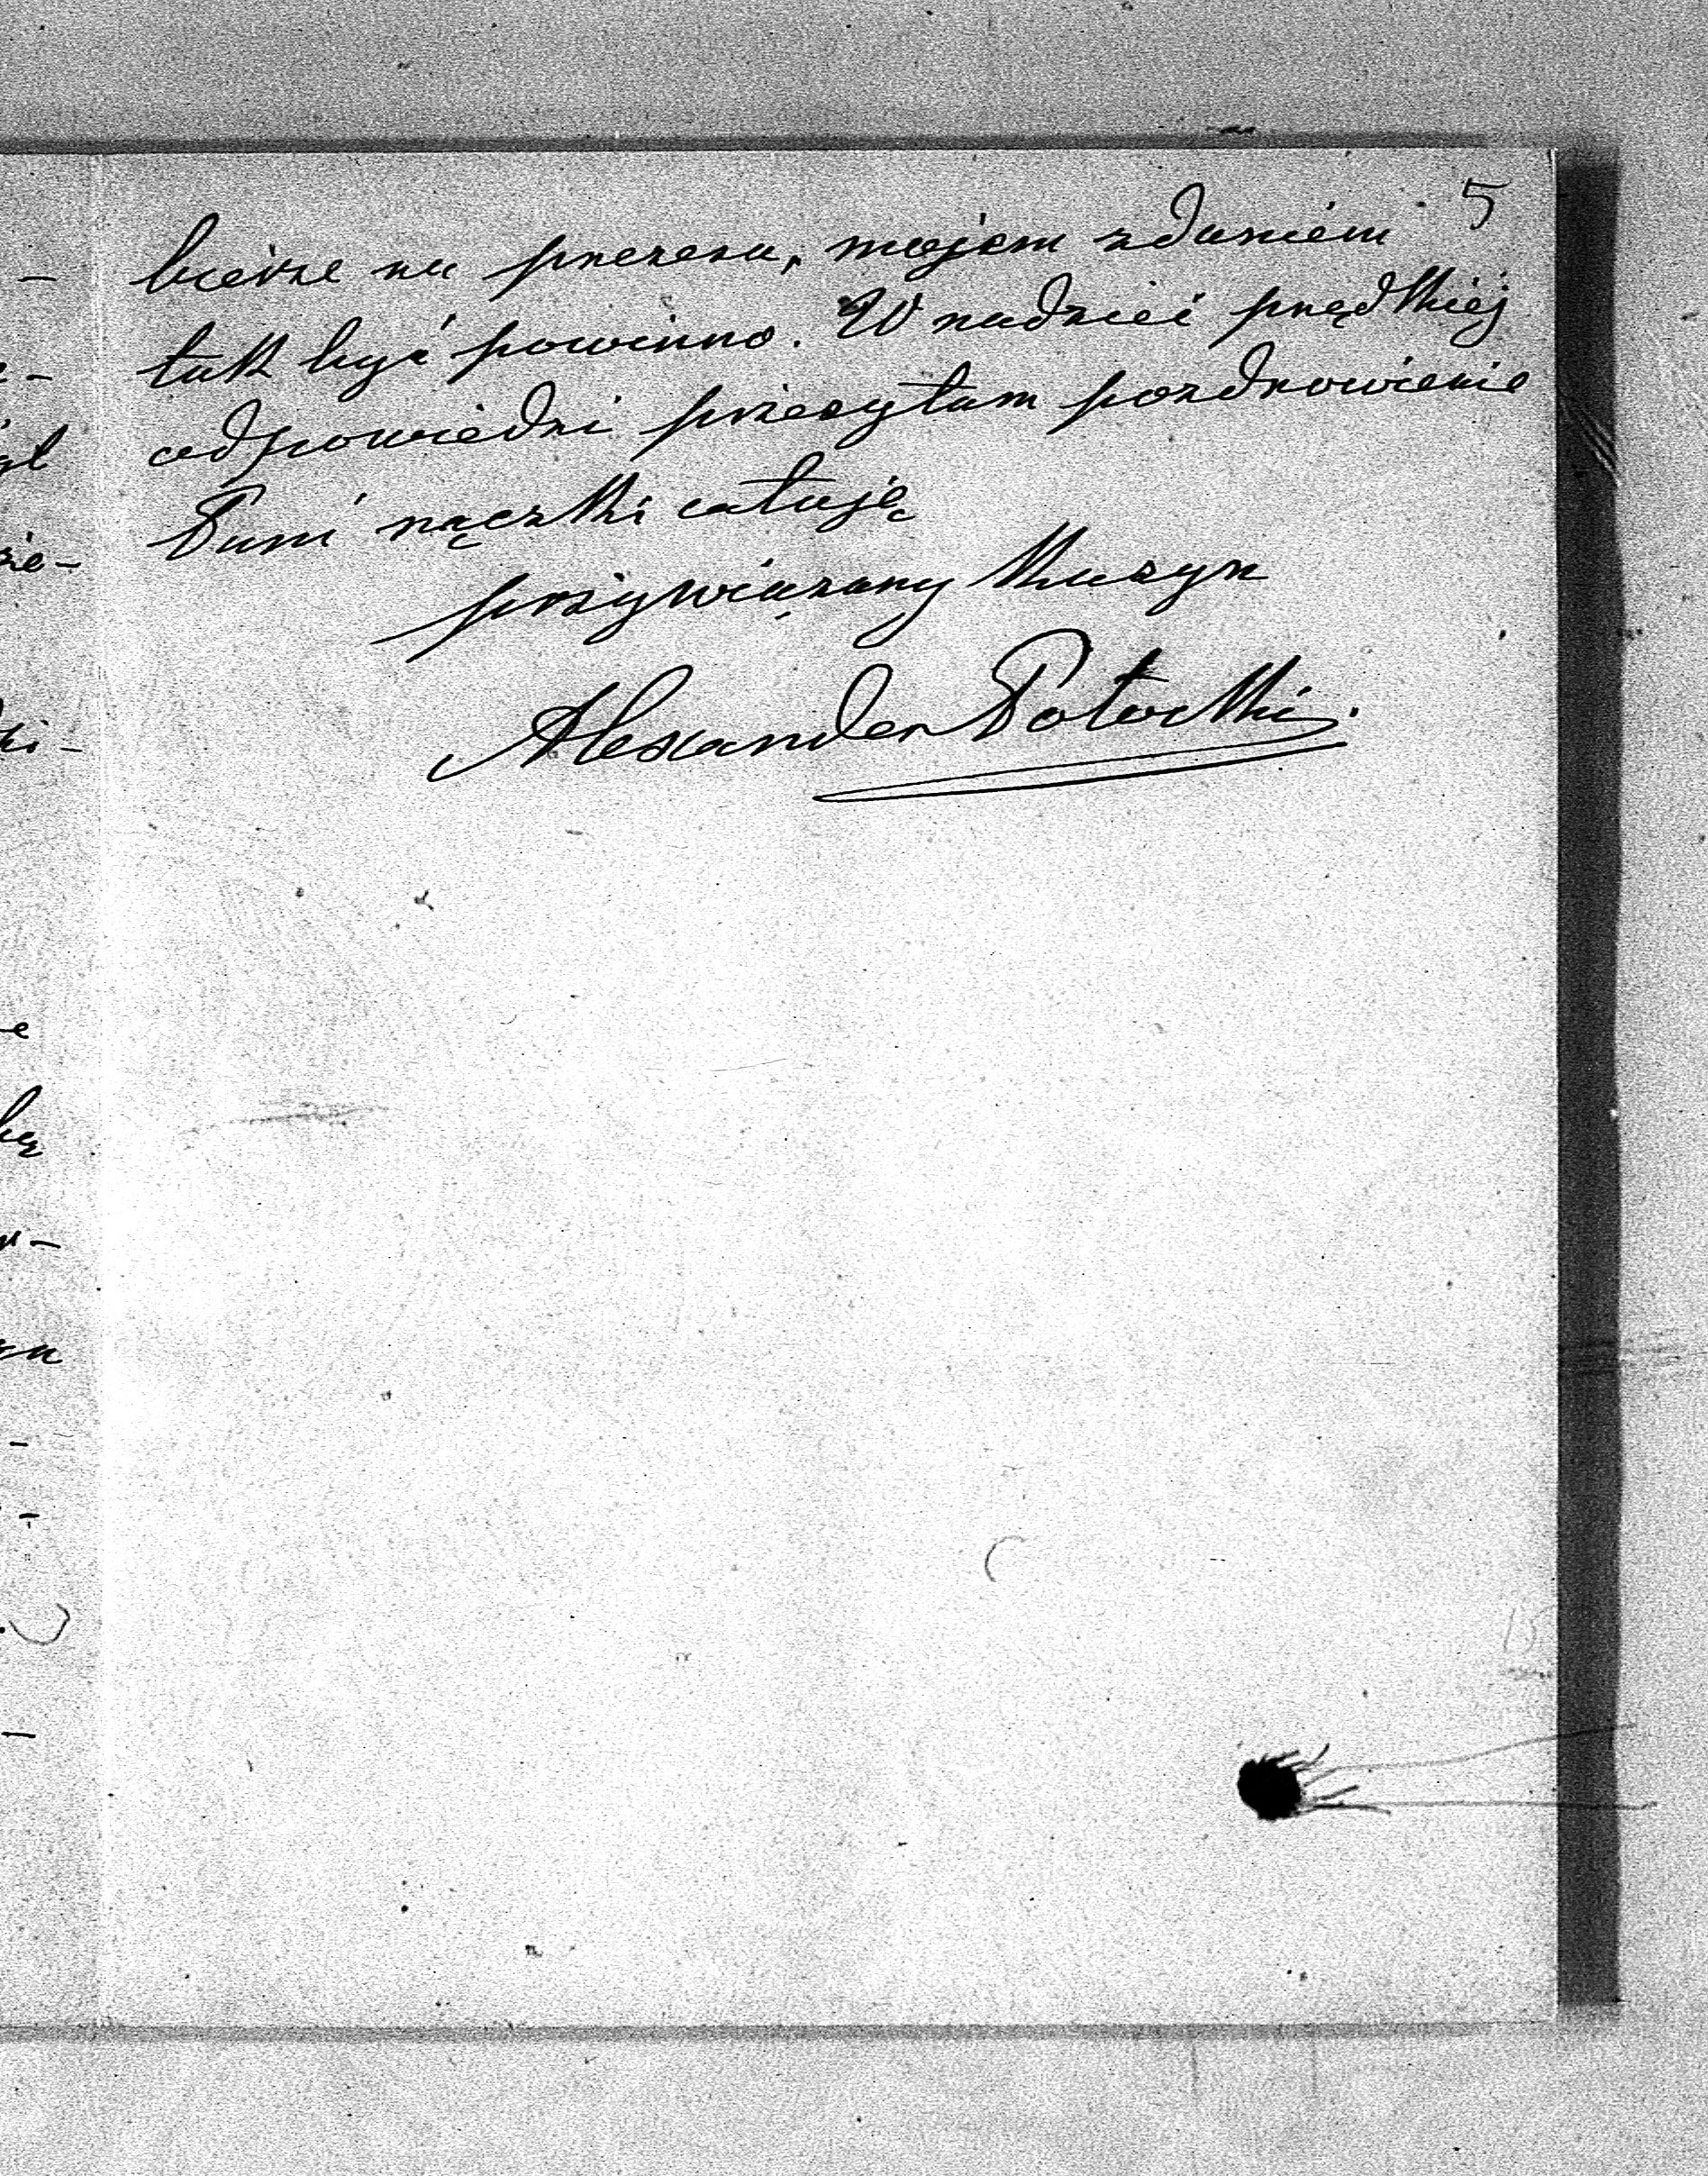 5
bierze na prezesa, mojem zdaniem
tak być powinno. W nadziei prędkiéj
odpowiedzi przesyłam pozdrowienie
Pani rączki całuję
przywiązany kuzyn
Alexander Potocki.